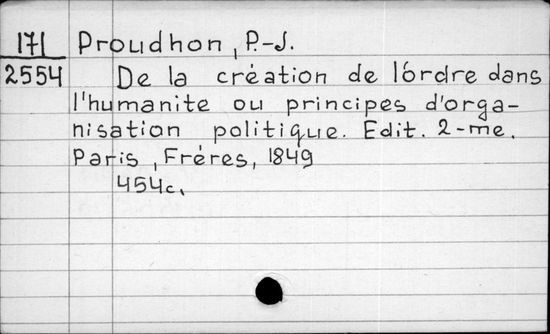 171 Proudhon, P.-J.
2554 De la création de l'órdre dans
l'humanite ou principes d'orga-
nisation politique. Edit. 2-me.
Paris, Fréres, 1849
454c.